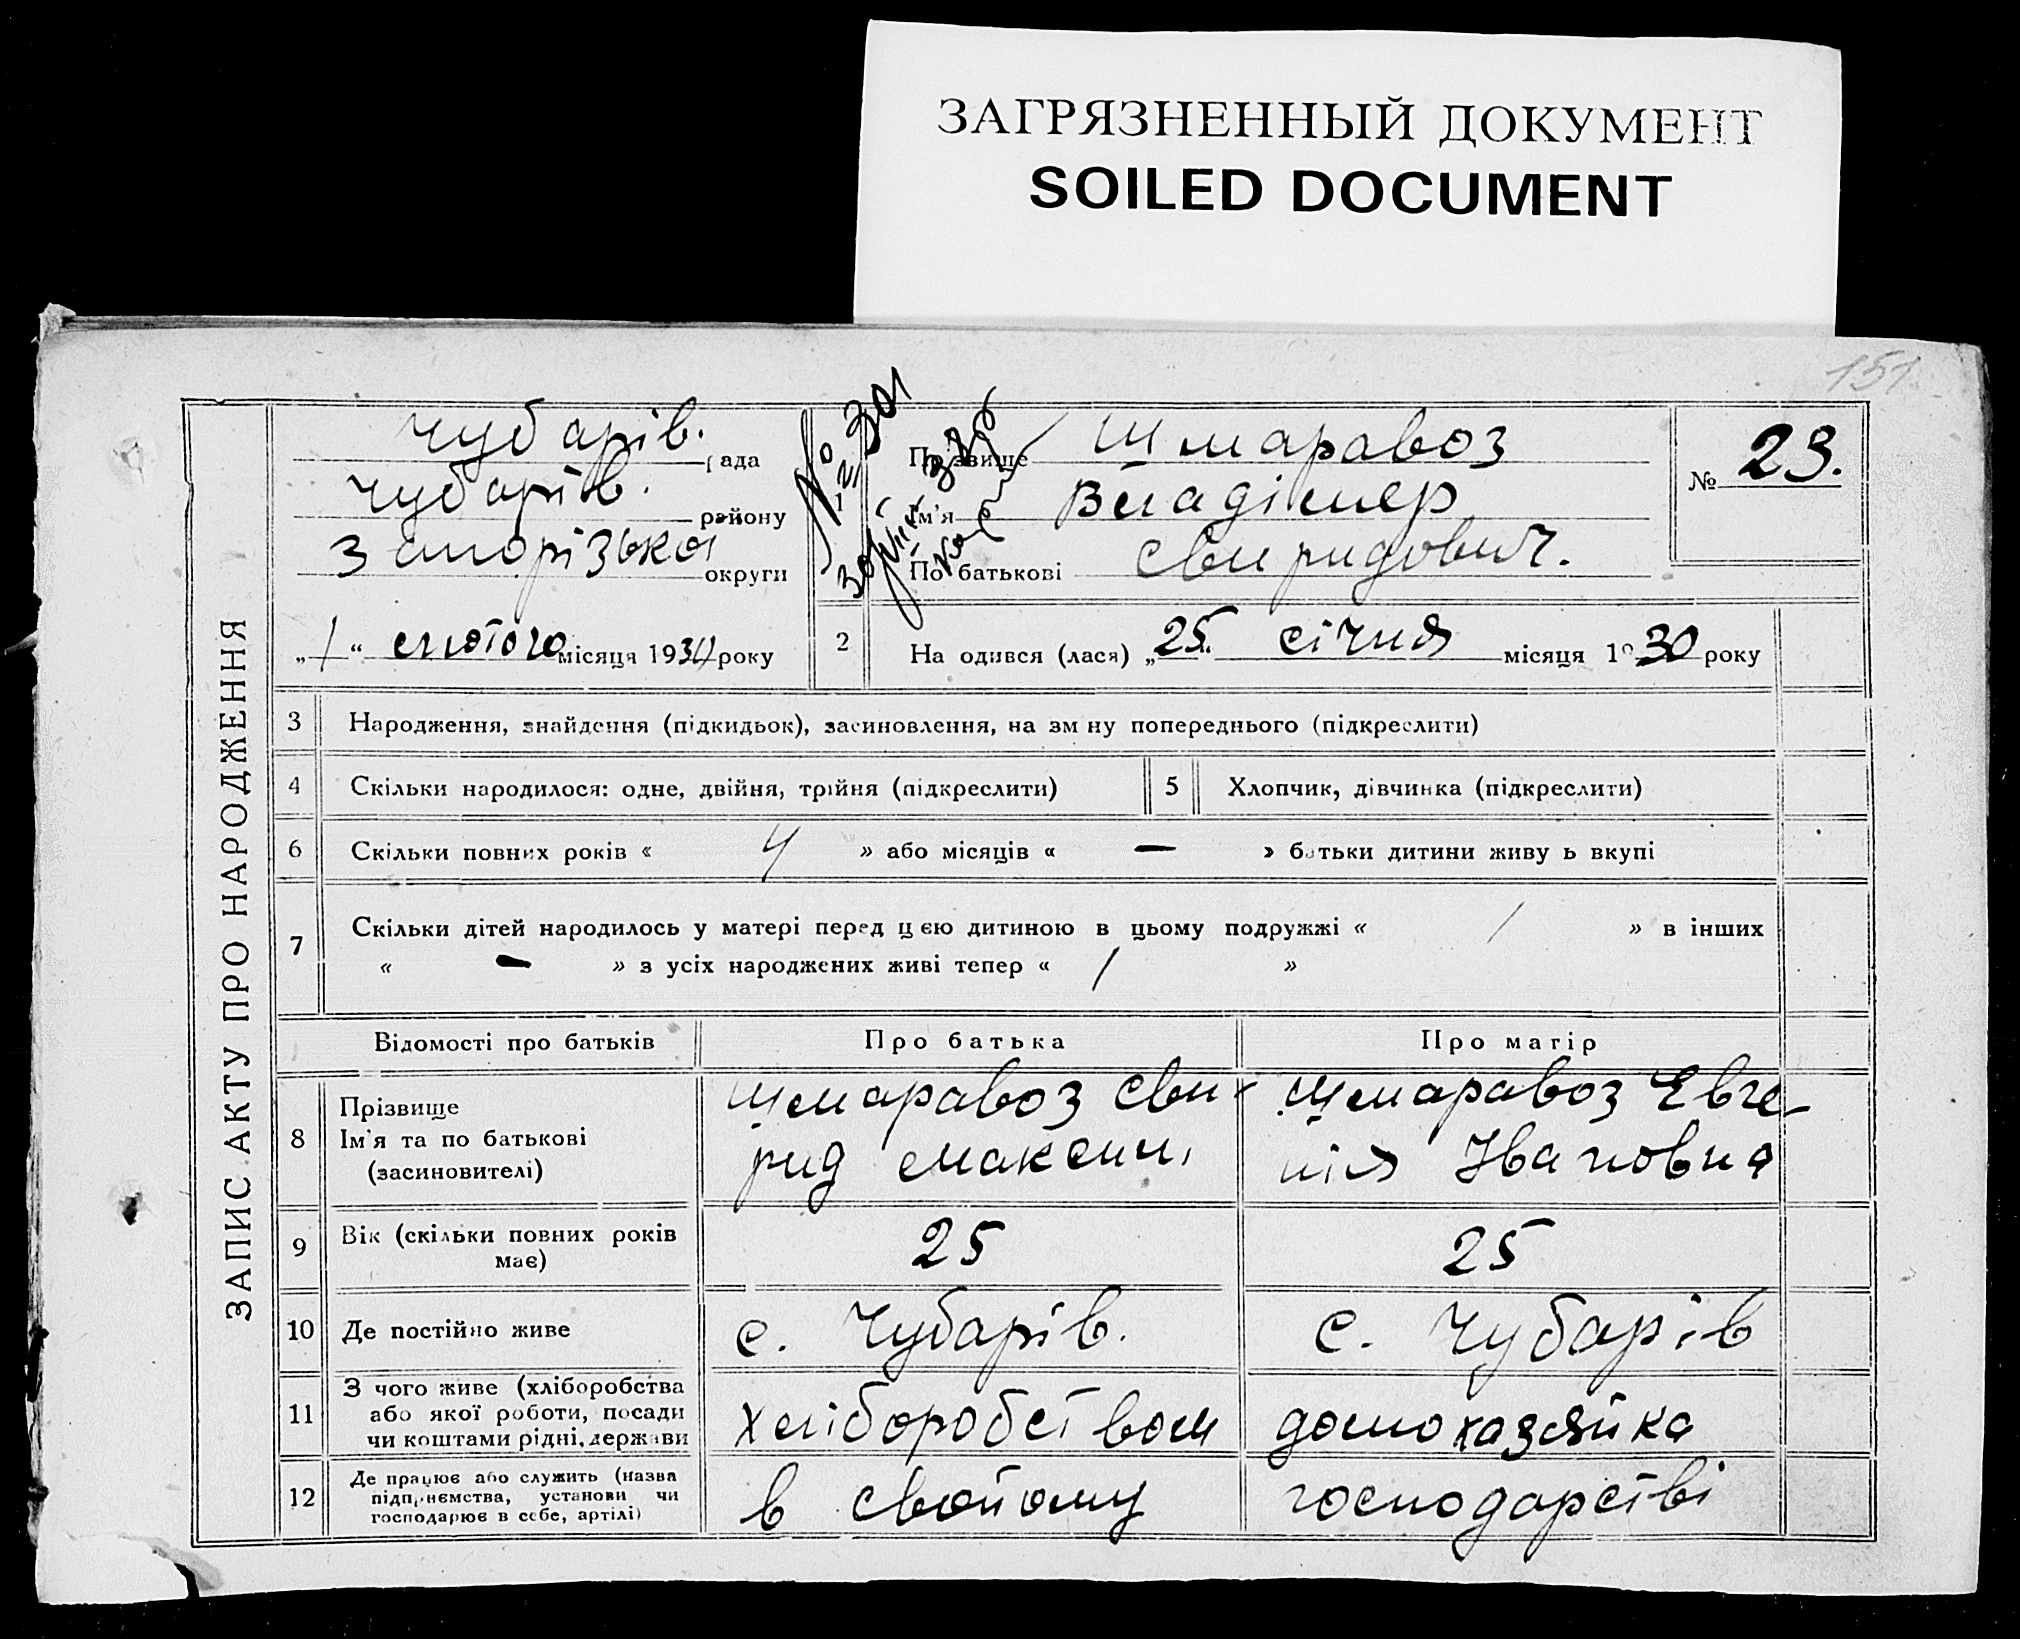 ЗАГРЯЗНЕННЫЙ ДОКУМЕНТ
SOILED DOCUMENT
151
ЗАПИС АКТУ ПРО НАРОДЖЕННЯ
Чубарів. рада
Чубарів. району
Запорізької округи
„1“ лютого місяця 1930 року
№ 301
1
Прізвище Шмаравоз
Ім'я Владімер
По батькові Свиридович.
№ 23.
2 Народився (лася) „25“ січня місяця 1930 року
3 Народження, знайдення (підкидьок), засиновлення, на зміну попереднього (підкреслити)
4 Скільки народилося: одне, двійня, трійня (підкреслити) 5 Хлопчик, дівчинка (підкреслити)
6 Скільки повних років « 4 » або місяців « — » батьки дитини живуть вкупі
7 Скільки дітей народилось у матері перед цією дитиною в цьому подружжі « 1 » в інших
« — » з усіх народжених живі тепер « 1 »
Відомості про батьків Про батька Про матір
8 Прізвище
Ім'я та по батькові
(засиновителі)
Шмаравоз Сви-
рид Максим.
Шмаравоз Евге-
нія Івановна
9 Вік (скільки повних років
має)
25 25
10 Де постійно живе с. Чубарів. с. Чубарів
11 З чого живе (хліборобства
або якої роботи, посади
чи коштами рідні, держави
хліборобством домохазяйка
12 Де працює або служить (назва
підприємства, установи чи
господарює в себе, артілі)
в свойому господарстві